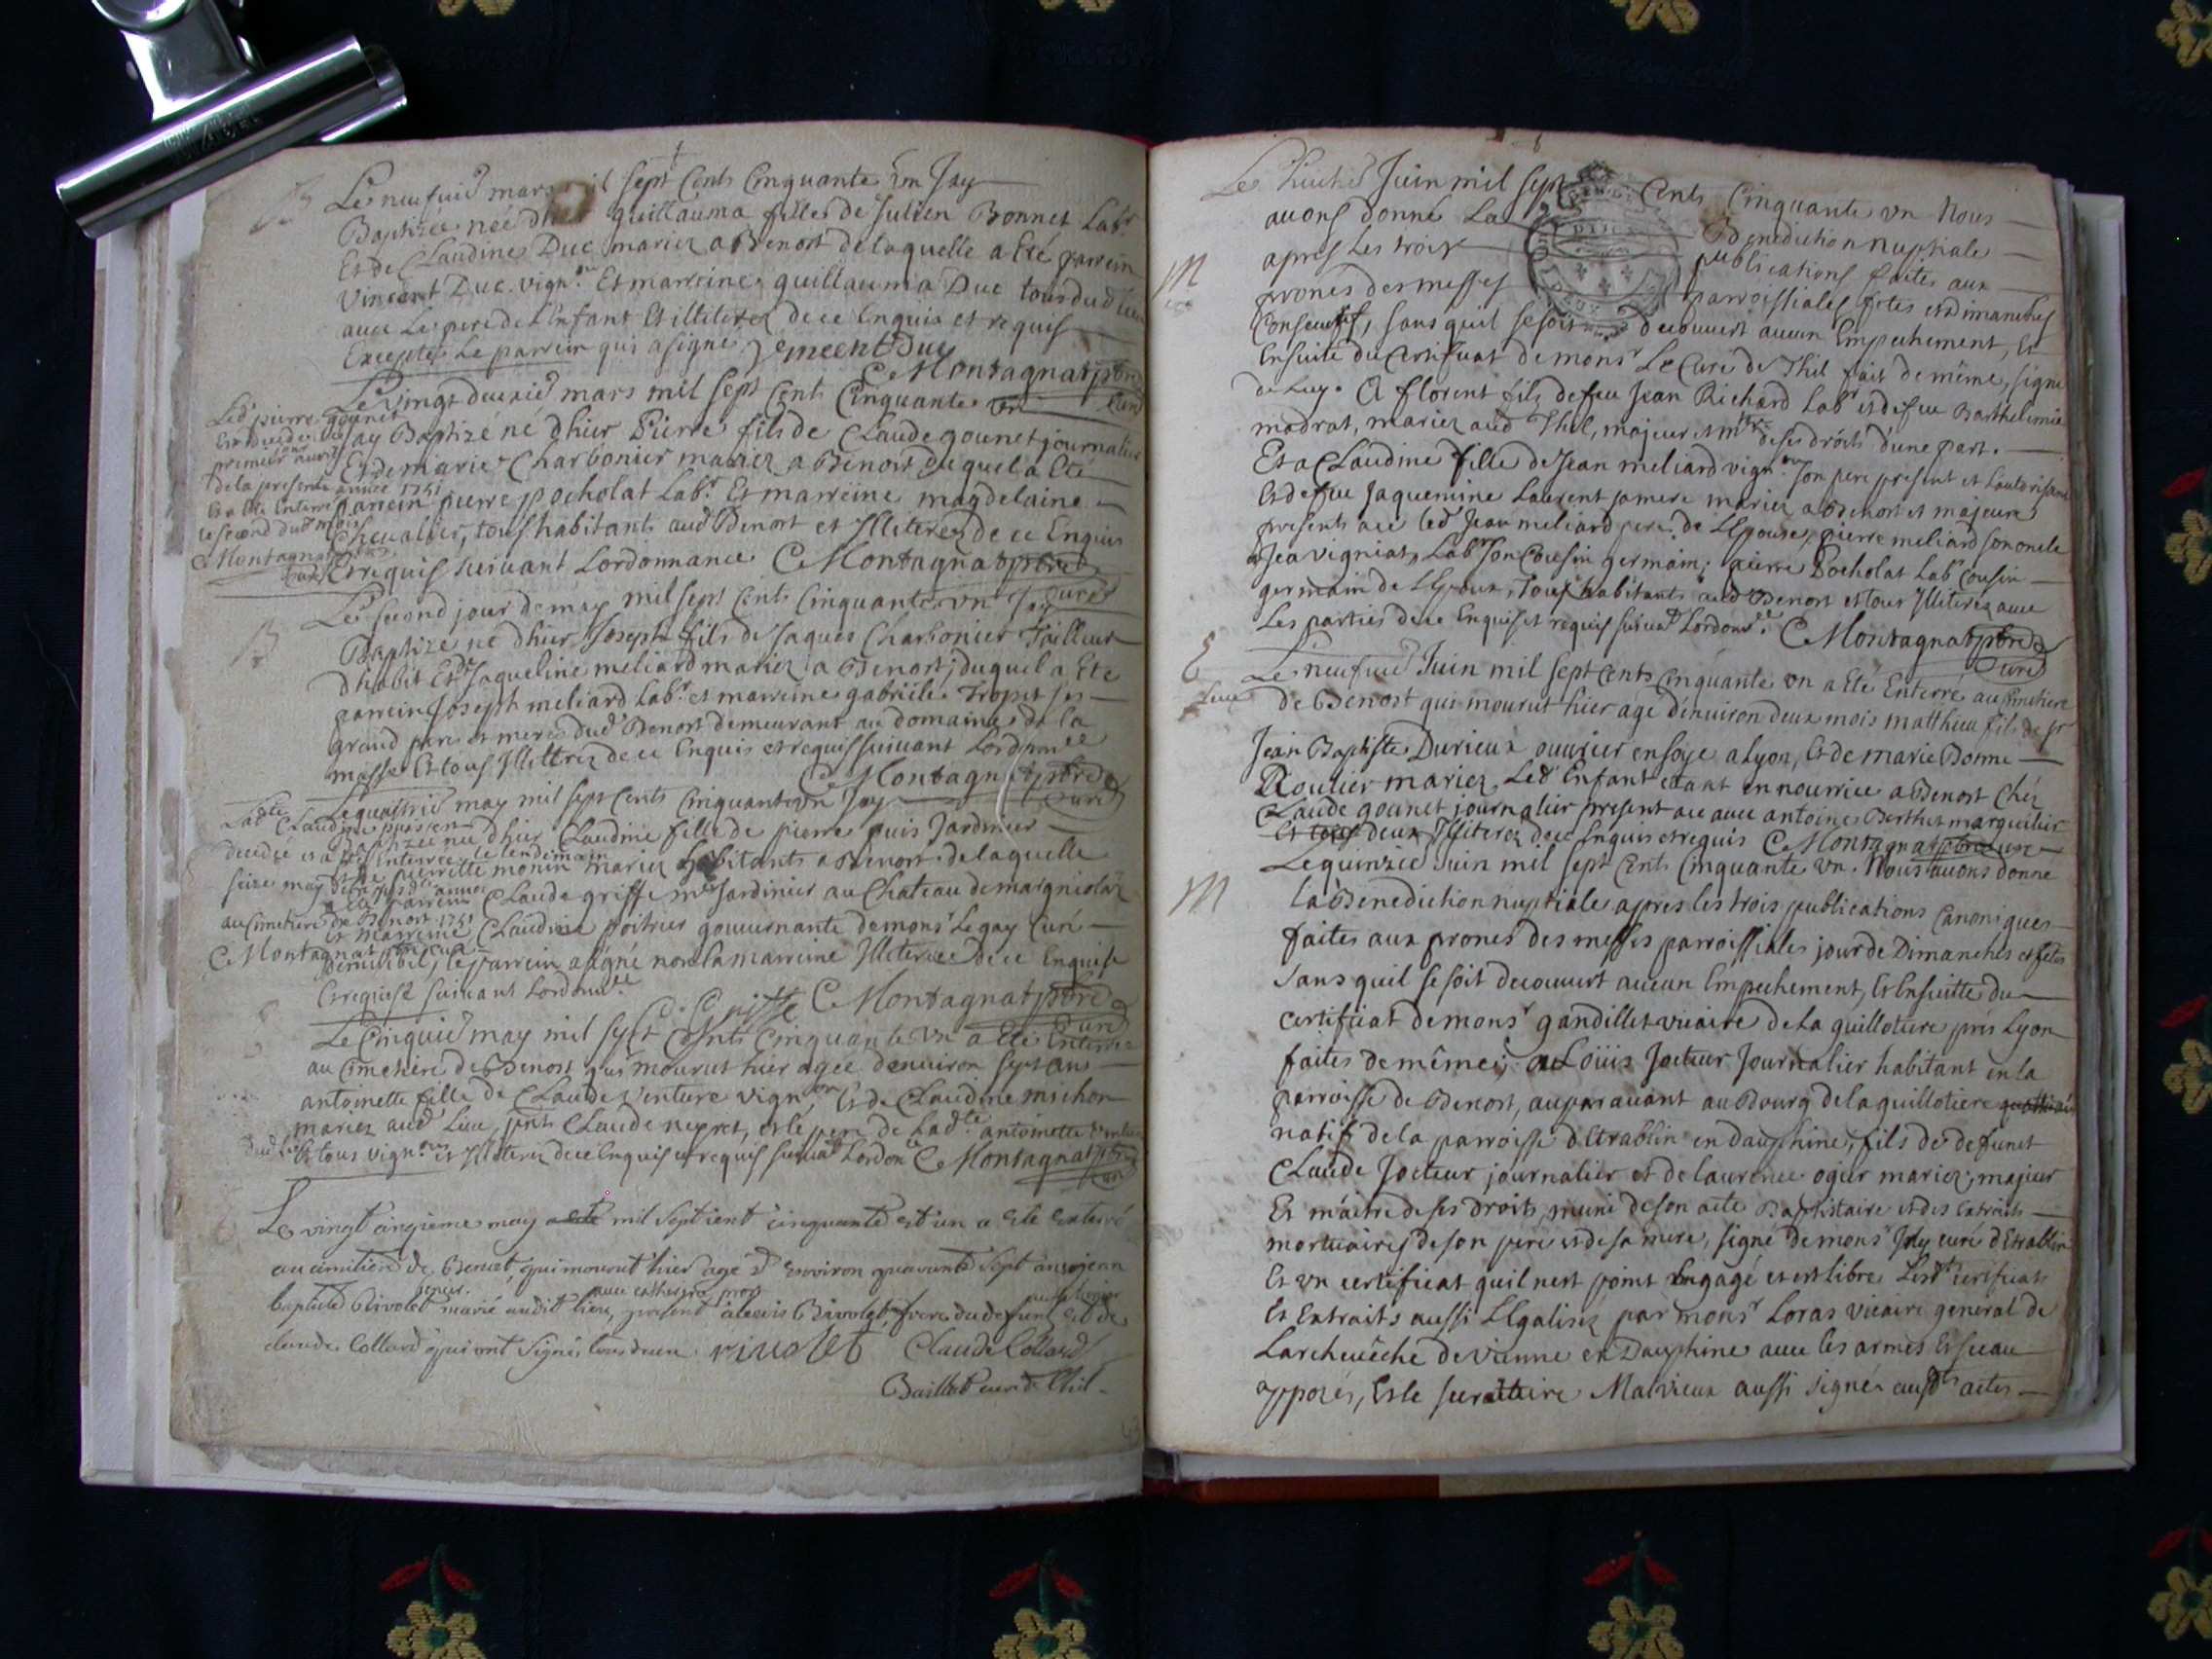 B
Le neufuie mars mil sept Cents Cinquante Un Jay
Baptizée née dhier guillauma fille de Julien Bonnet Labr
Et de Claudine Duc mariez a Benost de laquelle a Eté parrein
Vincent Duc vign.on Et marreine guillauma Duc tous dud lieu
auec Le pere de L'Enfant Et illiterez de ce Enquis et requis
Exceptez Le parrein qui a signé Vincent Duc
C Montagnat ptre
Curé
Le Vingt deuxie mars mil sept Cents Cinquante un
jay Baptizé né dhier Pierre fils de Claude gounet journalier
Et de marie Charbonier mariez a Benost duquel a Eté
parrein pierre pocholat Labr. Et marreine magdelaine
Cheualier, tous habitants aud Benost et Illiterez de ce Enquis
Et requis suiuant Lordonnance C Montagnat ptre
Curé
Led pierre gounet
premier auril
de la presente année 1751
Et a Eté Enterré
le second dud mois
C Montagnat ptre
Curé
B
Le second jour de may mil sept Cents Cinquante vn Jay
Baptizé né dhier Joseph fils de Jaques Charbonier Tailleur
dhabit Et de Jaqueline meliard mariez a Benost; duquel a Eté
parrein Joseph meliard Labr. et marreine gabrièle Tropet ses
grand pere et mere dud Benost demeurant au domaine de la
masse Et tous Illiterez de ce Enquis et requis suiuant Lordonnce
C Montagnat ptre
Curé
Le quatrie may mil sept Cents Cinquante vn Jay
Baptizée née dhier Claudine fille de pierre puis Jardinier
Et de pierrette monin mariez habitants a Benost de laquelle
a Eté parrein Claude griffe me Jardinier au Chateau de margniolaz
Et marreine Claudine poitrier gouuernante de monsr Legay Curé
de miribel, le parrein a signé non la marreine Illiterée de ce Enquise
Et requise suiuant Lordonnce
C. Griffe C Montagnat ptre
Curé
Ladte Claudine puis est
decedée et a Eté Enterrée le lendemain
seize may de la pnte année
au Cimetiere de Benost 1751
C Montagnat ptre Curé
Le Cinquie may mil sept Cents Cinquante Vn a Eté Enterrée
au Cimetiere de Benost qui mourut hier agée denuiron sept ans
antoinette fille de Claude Venture vign.on Et de Claudine michon
mariez aud Lieu, pnts Claude neyret, et le pere de Ladte antoinette Venture
dud L. Et tous vign.ons et Illiterez de ce Enquis et requis suiuat Lordonce C Montagnat ptre
Curé
Le vingt cinqieme may mil sept cent cinquante et un a esté enterré
au cimitiere de Benost, qui mourut hier agé d'environ quarante sept ans jean
baptiste Rivolet marié audit lieu, auec catherine present alexis Rivolet, frere du defunt et de
claude Collard qui ont signé tous deux. rivolet Claude Collard
Baillod curé de Thil.
M
Le huitie Juin mil sept Cents Cinquante vn Nous
auons donné La Benediction nuptiale
apres Les trois publications faites aux
prones des messes parroissiales fetes et dimanches
Consecutifs, sans quil se soit decouuert aucun Empechement, Et
Ensuite du Certificat de monsr Le Curé de Thil fait de même, signé
de Luy. A florent fils de feu Jean Richard Labr et de feu Barthelimie
madrat, mariez aud Thil, majeur et mtre de ses dróits d'une part.
Et a Claudine fille de Jean meliard vign.on son pere present et Lautorisant
Et de feue Jaquemine Laurent sa mere mariez a Benost et majeure
presents a ce led Jean meliard pere de L'Epouse, pierre meliard son oncle
Jea vigniat, Labr son Cousin germain; pierre Pocholat Labr Cousin
germain de L'Epoux, Tous habitants aud Benost et tous Illiterez auec
Les parties de ce Enquis et requis suiuat Lordonce. C Montagnat ptre
Curé
E
Le neufuie Juin mil sept Cents Cinquante vn a Eté Enterré au Cimetiere
de Benost qui mourut hier agé d'enuiron deux mois matthieu fils de sr
Jean Baptiste Durieux ouurier en soye a Lyon, Et de marie Bonne
Roulier mariez, Led Enfant etant en nourrice a Benost Chéz
Claude gounet journalier present a ce auec antoine Berthet marguilier
Et tous deux Illiterez de ce Enquis et requis C Montagnat ptre Curé
M
Le quinzie Juin mil sept Cents Cinquante vn. Nous auons donné
la Benediction nuptiale apres les trois publications Canoniques
faites aux prones des messes parroissiales jour de Dimanches et fetes
sans quil se soit decouuert aucun Empechement, Et Ensuitte du
certificat de monsr gandillet vicaire de la guillotiere prés Lyon
faites de même; a Loüis Jocteur Journalier habitant en la
parroisse de Benost, auparauant au Bourg de la guillotiere
natif de la parroisse d'Etrablin en dauphiné, fils de defunct
Claude Jocteur journalier et de laurence ogier mariez, majeur
Et máitre de ses droits muni de son acte Baptistaire et des Extraits
mortuaires de son pere et de sa mere, signé de monsr Joly curé d'Etrablin
Et vn certificat quil nest point Engagé et est libre Lesdts certificats
Et Extraits aussi Légalisez par monsr Loras vicaire general de
Larcheuêché de Vienne en Dauphiné auec les armes Et sceau
apposés, Et le secretaire Malvieux aussi signé ausdts actes